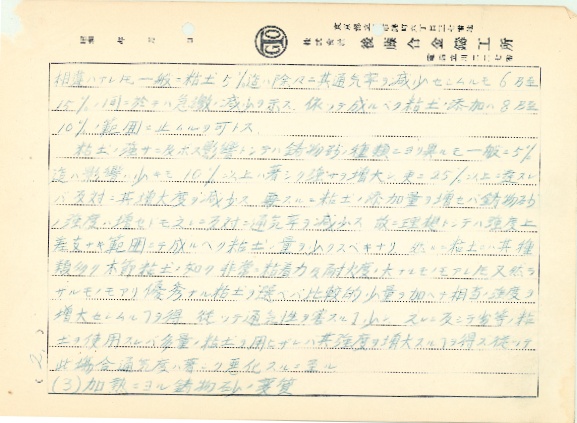 昭和 年 月 日
GTO
株式会社 後藤合金鋳工所
相違ハアレ共一般ニ粘土5%迄ハ除々ニ其通気率ヲ減少セシムルモ6乃至
15%ノ間ニ於テハ急激ニ減少ヲ示ス 依ッテ成ルベク粘土ノ添加ハ8乃至
10%ノ範囲ニ止ムルヲ可トス
粘土ノ強サニ及ホス影響トシテハ鋳物砂ノ種類ニヨリ異ルモ一般ニ5%
迄ハ影響少キモ10%以上ハ著シク強サヲ増大シ更ニ25%以上ニ達スレ
バ反対ニ其増大度ヲ減少ス 要スルニ粘土ノ添加量ヲ増セバ鋳物砂
ノ強度ハ増セドモ之ニ反対ニ通気率ヲ減少ス 故ニ理想トシテハ強度上
差支ナキ範囲ニテ成ルベク粘土ノ量ヲ少クスベキナリ 然ルニ粘土ニハ其種
類多ク木節粘土ノ如ク非常ニ粘着力及耐火度ノ大ナルモノモアレ共又然ラ
サルモノモアリ優秀ナル粘土ヲ選ベバ比較的少量ヲ加ヘテ相当ノ強度ヲ
増大セシムルヲ得 従ッテ通気性ヲ害スルコト少シ 之ニ反シテ劣等ノ粘
土ヲ使用スレバ多量ノ粘土ヲ用ヒザレバ其強度ヲ増大スルヲ得ス従ッテ
此場合通気度ハ著シク悪化スルニ至ル
(3) 加熱ニヨル鋳物砂ノ変質
(2)